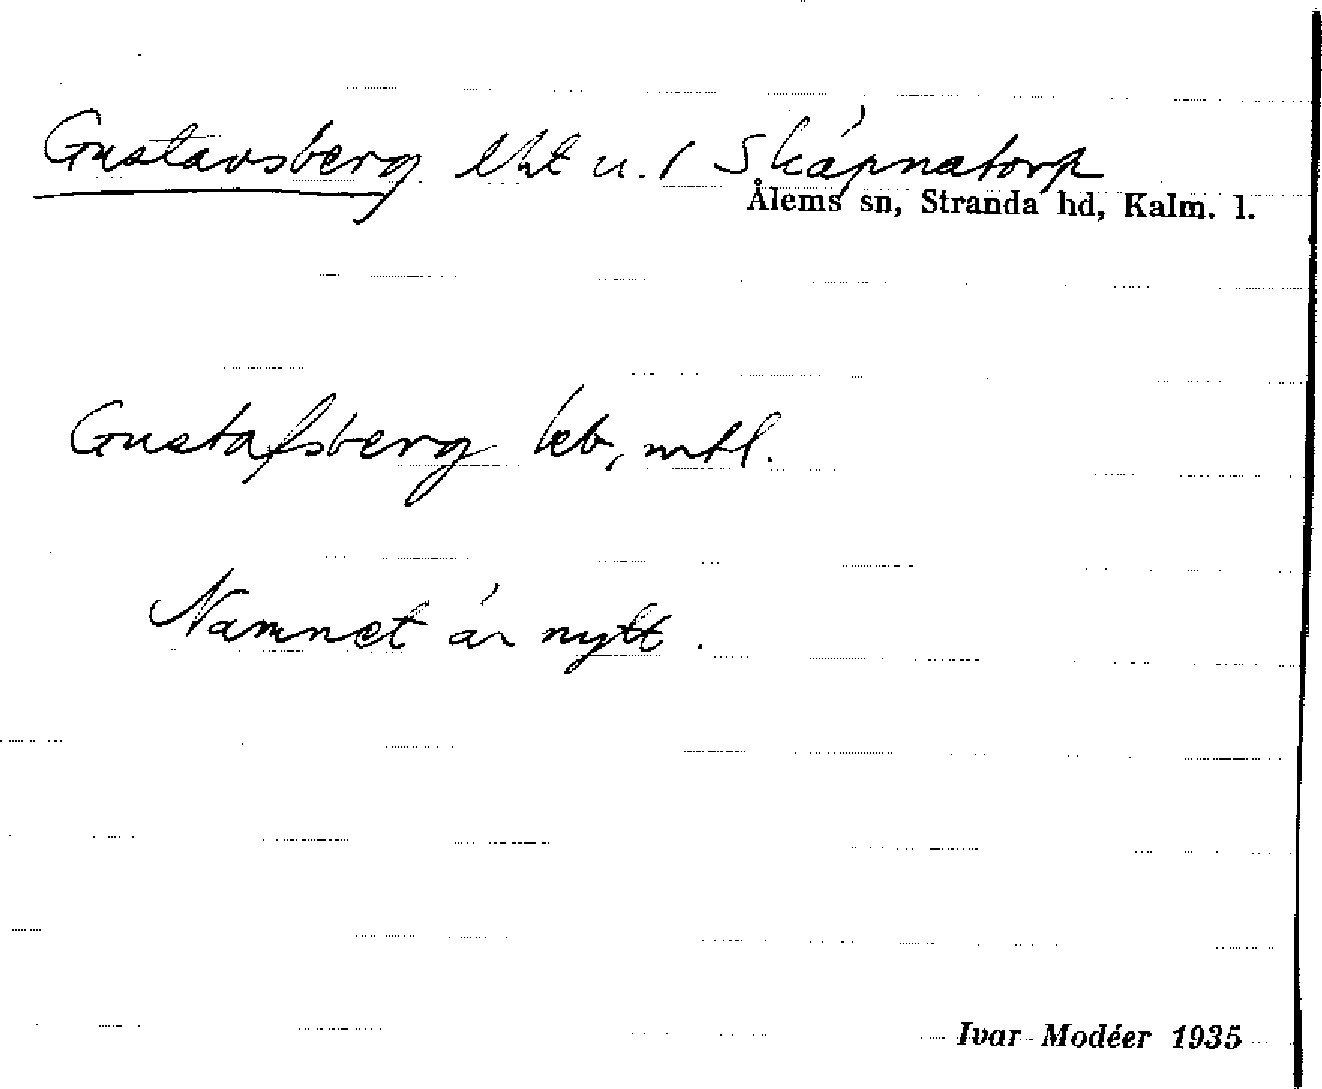 Gustavsberg lht u. 1 Skäpnatorp
Ålems sn, Stranda hd, Kalm. l.
Gustafsberg keb, mtl.
Namnet är nytt.
Ivar Modéer 1935